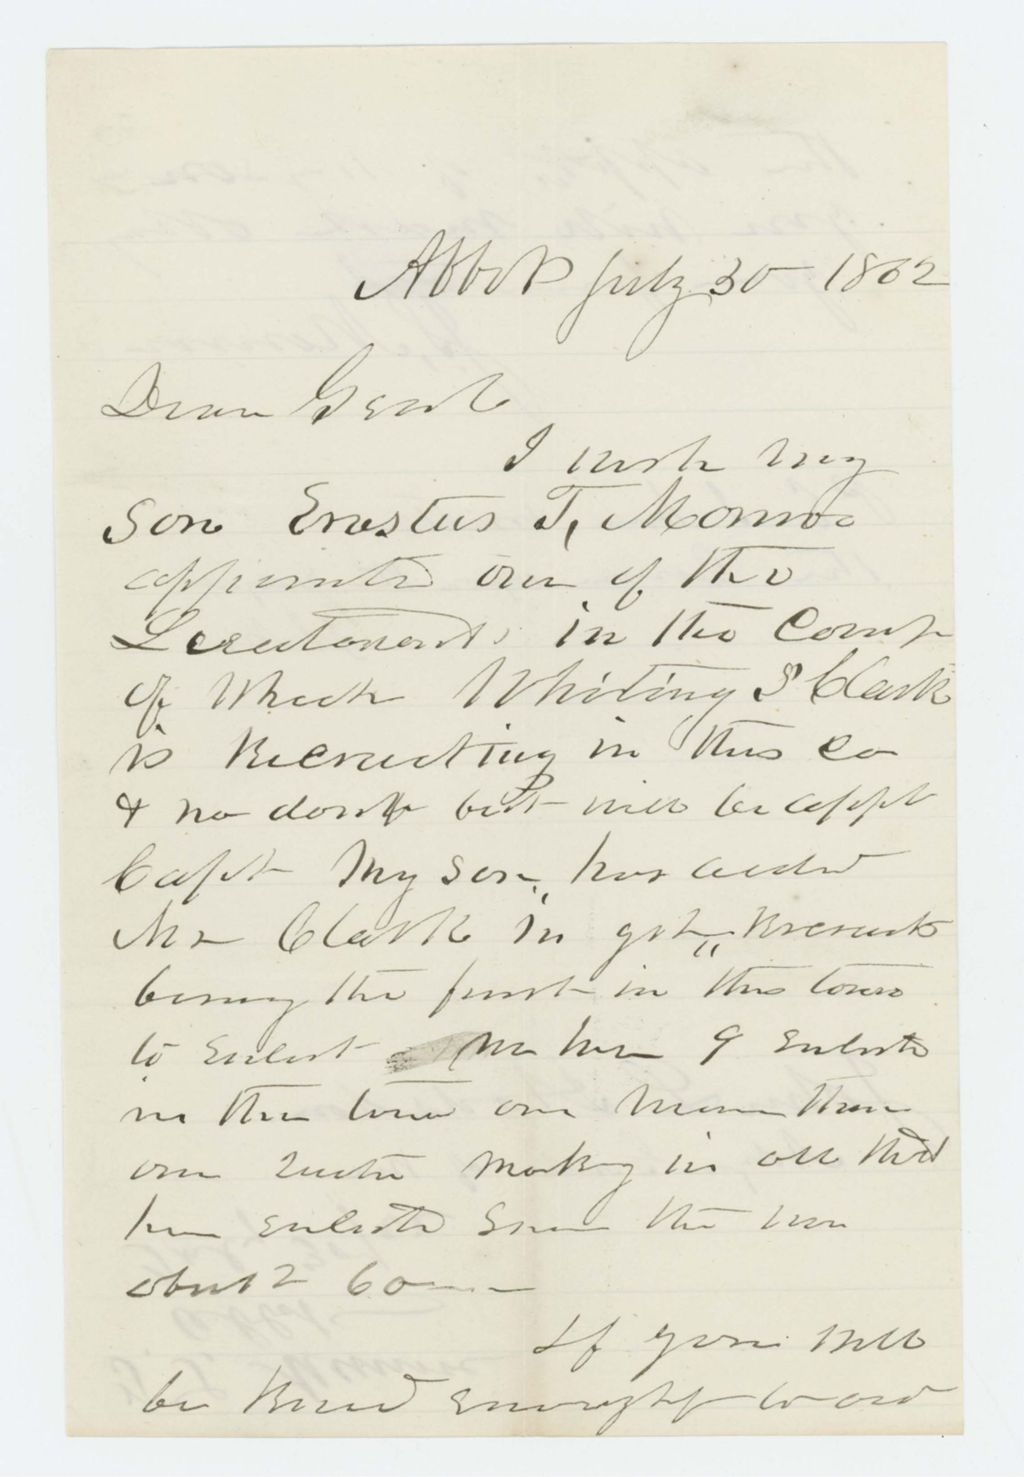 Abbot July 30 1862
Dear Genl
I wish my
Son Erastus T, Monroe
appointed one of the
Lieutenants in the Comp
of Which Whiting S Clark
is Recruiting in this Co
& no doubt but will be appt
Capt My son, has aided
Mr Clark in get,, Recruits
being the first in this town
to Enlist We have 9 Enlisted
in this town one more than
our quota making in all that
have enlisted Since the war
about
If you will
be kind enough to aid